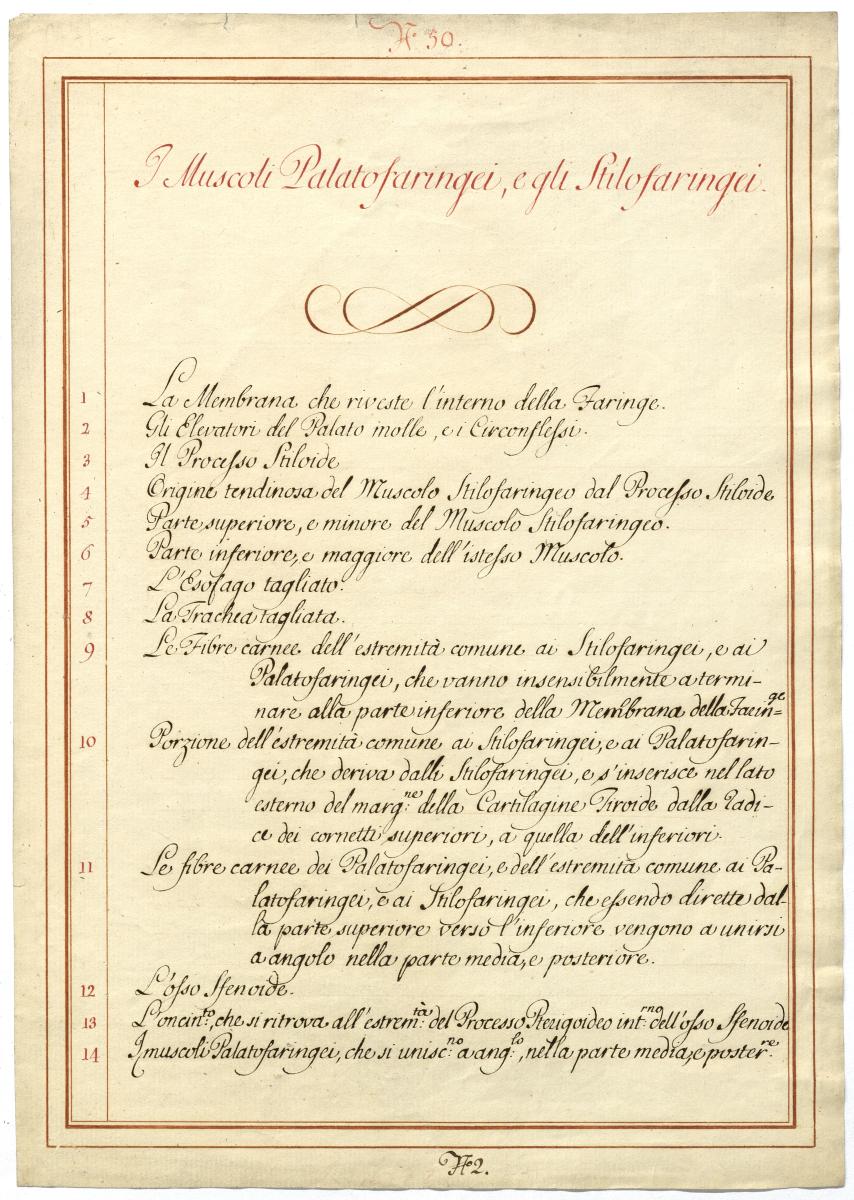 N.° 50.
I Muscoli Palatofaringei, e gli Stilofaringei.
1 La Membrana che riveste l'interno della Faringe.
2 Gli Elevatori del Palato molle, e i Circonflessi.
3 Il Processo Stiloide
4 Origine tendinosa del Muscolo Stilofaringeo dal Processo Stiloide
5 Parte superiore, e minore del Muscolo Stilofaringeo.
6 Parte inferiore, e maggiore dell'istesso Muscolo.
7 L'Esofago tagliato.
8 La Trachea tagliata.
9 Le Fibre carnee dell'estremità comune ai Stilofaringei, e ai
Palatofaringei, che vanno insensibilmente a termi-
nare alla parte inferiore della Membrana della Faein=ge
10 Porzione dell'estremità comune ai Stilofaringei, e ai Palatofarin-
gei, che deriva dalli Stilofaringei, e s'inserisce nel lato
esterno del marg:ne della Cartilagine Tiroide dalla Radi-
ce dei cornetti superiori, a quella dell'inferiori.
11 Le fibre carnee dei Palatofaringei, e dell'estremità comune ai Pa-
latofaringei, e ai Stilofaringei, che essendo dirette dal-
la parte superiore verso l'inferiore vengono a unirsi
a angolo nella parte media, e posteriore.
12 L'osso Sfenoide.
13 L'oncin:to, che si ritrova all'estrem:tà del Processo Pterigoideo int:rno dell'osso Sfenoide
14 I muscoli Palatofaringei, che si unisc:no a ang:lo, nella parte media, e poster:re
N.° 2.